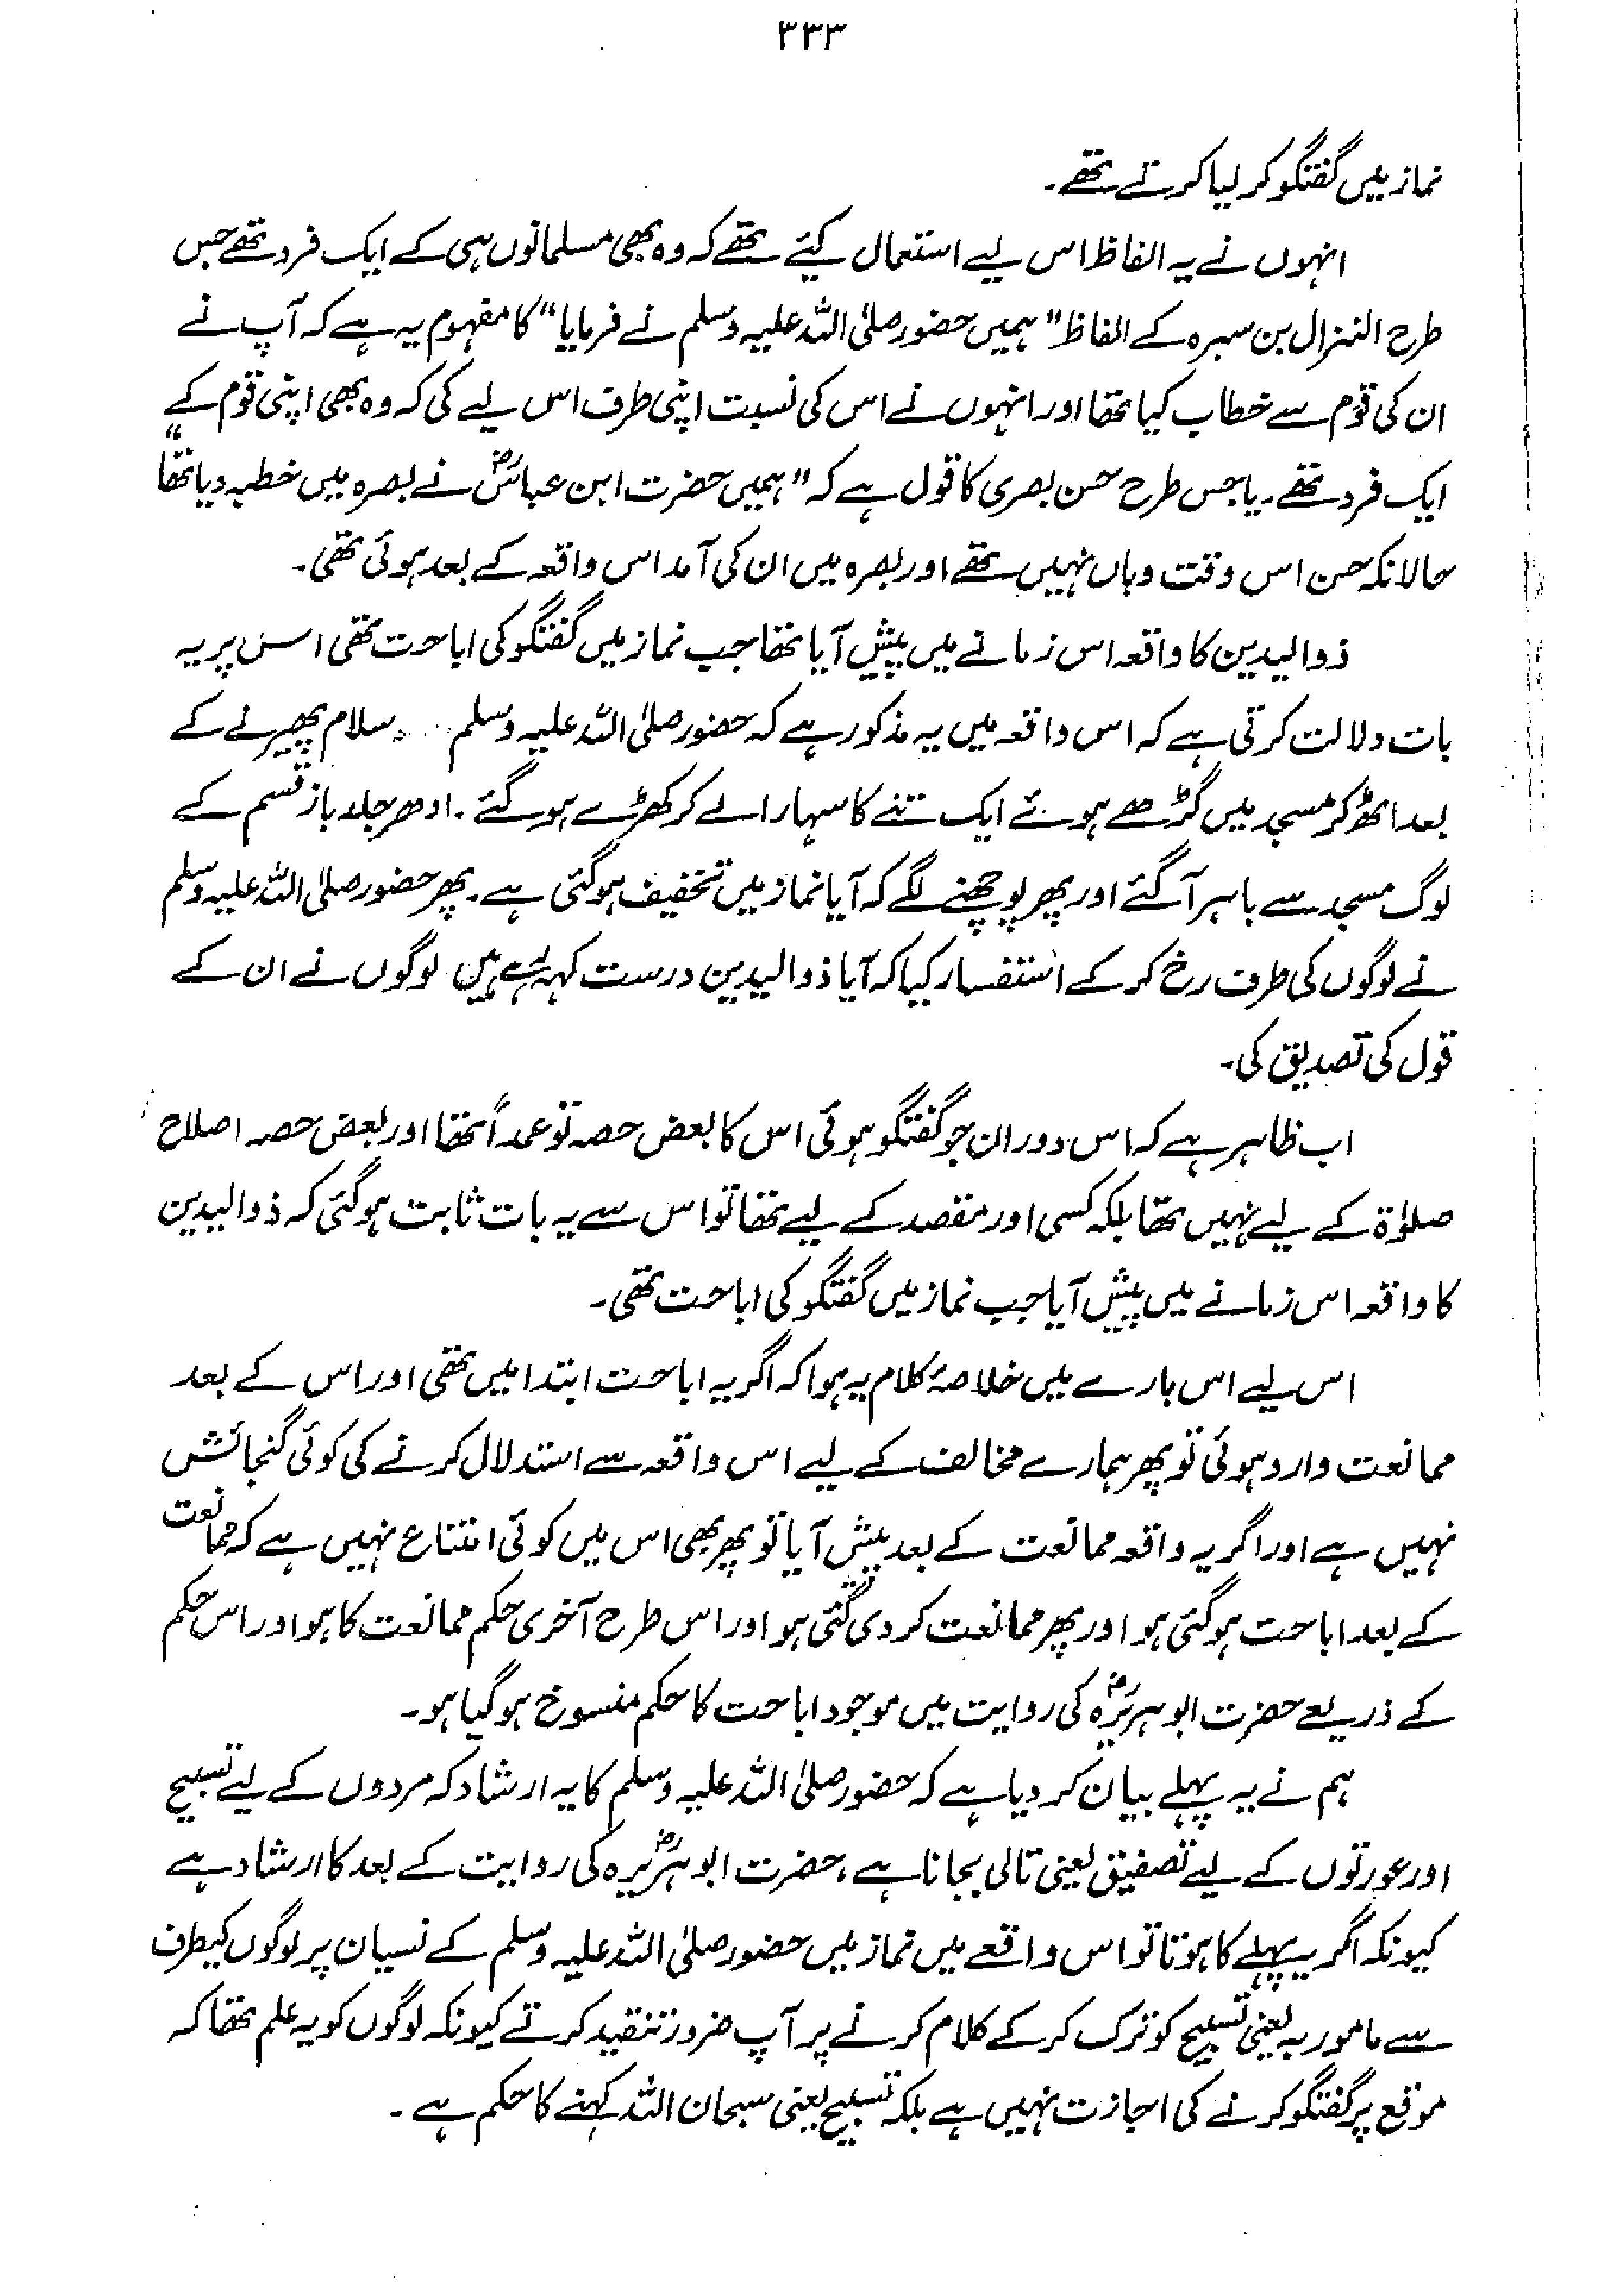 ۳۳۳
نماز میں گفتگو کر لیا کرتے تھے۔
انہوں نے یہ الفاظ اس لیے استعمال کیئے تھے کہ وہ بھی مسلمانوں ہی کے ایک فرد تھے جس
طرح النزال بن سبرہ کے الفاظ "ہمیں حضور صلی اللہ علیہ وسلم نے فرمایا" کا مفہوم یہ ہے کہ آپ نے
ان کی قوم سے خطاب کیا تھا اور انہوں نے اس کی نسبت اپنی طرف اس لیے کی کہ وہ بھی اپنی قوم کے
ایک فرد تھے۔ یا جس طرح حسن بصری کا قول ہے کہ "ہمیں حضرت ابن عباسؓ نے بصرہ میں خطبہ دیا تھا"
حالانکہ حسن اس وقت وہاں نہیں تھے اور بصرہ میں ان کی آمد اس واقعہ کے بعد ہوئی تھی۔
ذوالیدین کا واقعہ اس زمانے میں پیش آیا تھا جب نماز میں گفتگو کی اباحت تھی اس پر یہ
بات دلالت کرتی ہے کہ اس واقعہ میں یہ مذکور ہے کہ حضور صلی اللہ علیہ وسلم سلام پھیرنے کے
بعد اٹھ کر مسجد میں گڑھے ہوئے ایک تنے کا سہارا لے کر کھڑے ہو گئے۔ ادھر جلد باز قسم کے
لوگ مسجد سے باہر آ گئے اور پھر پوچھنے لگے کہ آیا نماز میں تخفیف ہو گئی ہے۔ پھر حضور صلی اللہ علیہ وسلم
نے لوگوں کی طرف رخ کر کے استفسار کیا کہ آیا ذوالیدین درست کہہ رہے ہیں لوگوں نے ان کے
قول کی تصدیق کی۔
اب ظاہر ہے کہ اس دوران جو گفتگو ہوئی اس کا بعض حصہ تو عمداً تھا اور بعض حصہ اصلاح
صلوٰۃ کے لیے نہیں تھا بلکہ کسی اور مقصد کے لیے تھا تو اس سے یہ بات ثابت ہو گئی کہ ذوالیدین
کا واقعہ اس زمانے میں پیش آیا جب نماز میں گفتگو کی اباحت تھی۔
اس لیے اس بارے میں خلاصۂ کلام یہ ہوا کہ اگر یہ اباحت ابتدا میں تھی اور اس کے بعد
ممانعت وارد ہوئی تو پھر ہمارے مخالف کے لیے اس واقعہ سے استدلال کرنے کی کوئی گنجائش
نہیں ہے اور اگر یہ واقعہ ممانعت کے بعد پیش آیا تو پھر بھی اس میں کوئی امتناع نہیں ہے کہ ممانعت
کے بعد اباحت ہو گئی ہو اور پھر ممانعت کر دی گئی ہو اور اس طرح آخری حکم ممانعت کا ہو اور اس حکم
کے ذریعے حضرت ابو ہریرہؓ کی روایت میں موجود اباحت کا حکم منسوخ ہو گیا ہو۔
ہم نے یہ پہلے بیان کر دیا ہے کہ حضور صلی اللہ علیہ وسلم کا یہ ارشاد کہ مردوں کے لیے تسبیح
اور عورتوں کے لیے تصفیق یعنی تالی بجانا ہے، حضرت ابو ہریرہؓ کی روایت کے بعد کا ارشاد ہے
کیونکہ اگر یہ پہلے کا ہوتا تو اس واقعے میں نماز میں حضور صلی اللہ علیہ وسلم کے نسیان پر لوگوں کیطرف
سے مامور بہ یعنی تسبیح کو ترک کر کے کلام کرنے پر آپ ضرور تنقید کرتے کیونکہ لوگوں کو یہ علم تھا کہ
موقع پر گفتگو کرنے کی اجازت نہیں ہے بلکہ تسبیح یعنی سبحان اللہ کہنے کا حکم ہے۔